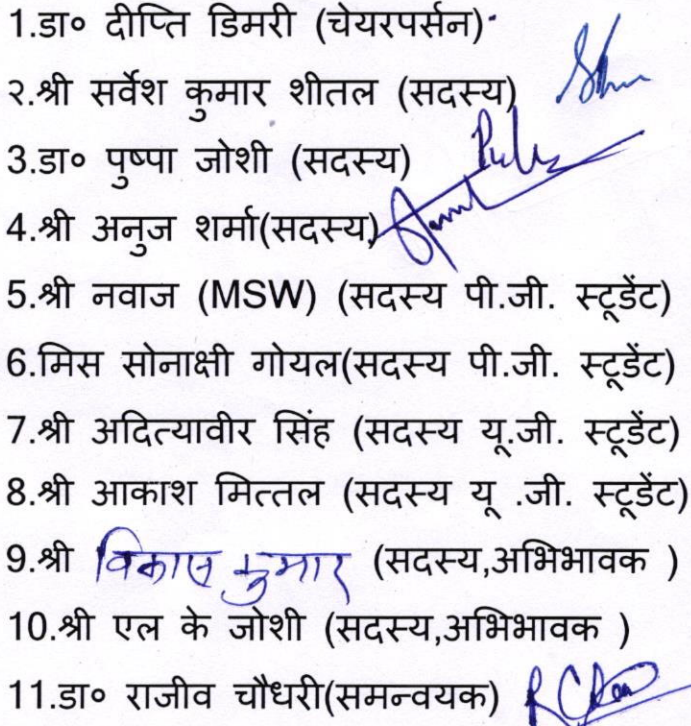 1.डा० दीप्ति डिमरी (चेयरपर्सन)
२.श्री सर्वेश कुमार शीतल (सदस्य)
3.डा० पुष्पा जोशी (सदस्य)
4.श्री अनुज शर्मा(सदस्य)
5.श्री नवाज (MSW) (सदस्य पी.जी. स्टूडेंट)
6.मिस सोनाक्षी गोयल(सदस्य पी.जी. स्टूडेंट)
7.श्री अदित्यावीर सिंह (सदस्य यू.जी. स्टूडेंट)
8.श्री आकाश मित्तल (सदस्य यू .जी. स्टूडेंट)
9.श्री विकास कुमार (सदस्य,अभिभावक )
10.श्री एल के जोशी (सदस्य,अभिभावक )
11.डा० राजीव चौधरी(समन्वयक)